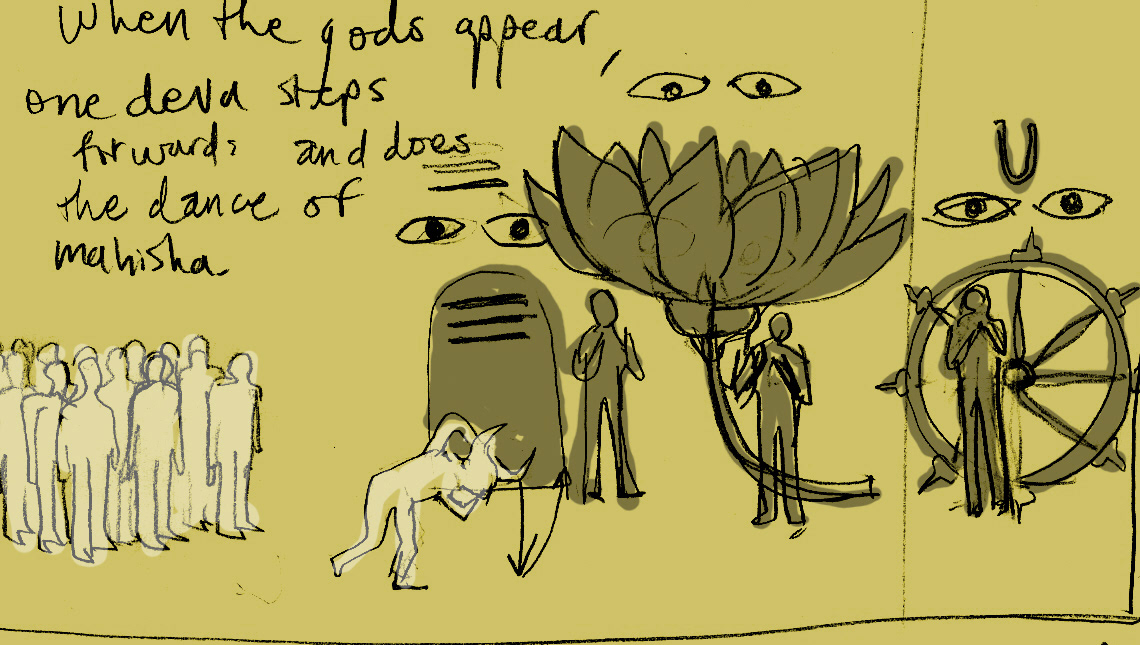 When the gods appear,
one deva steps
forward: and does
the dance of
mahisha.